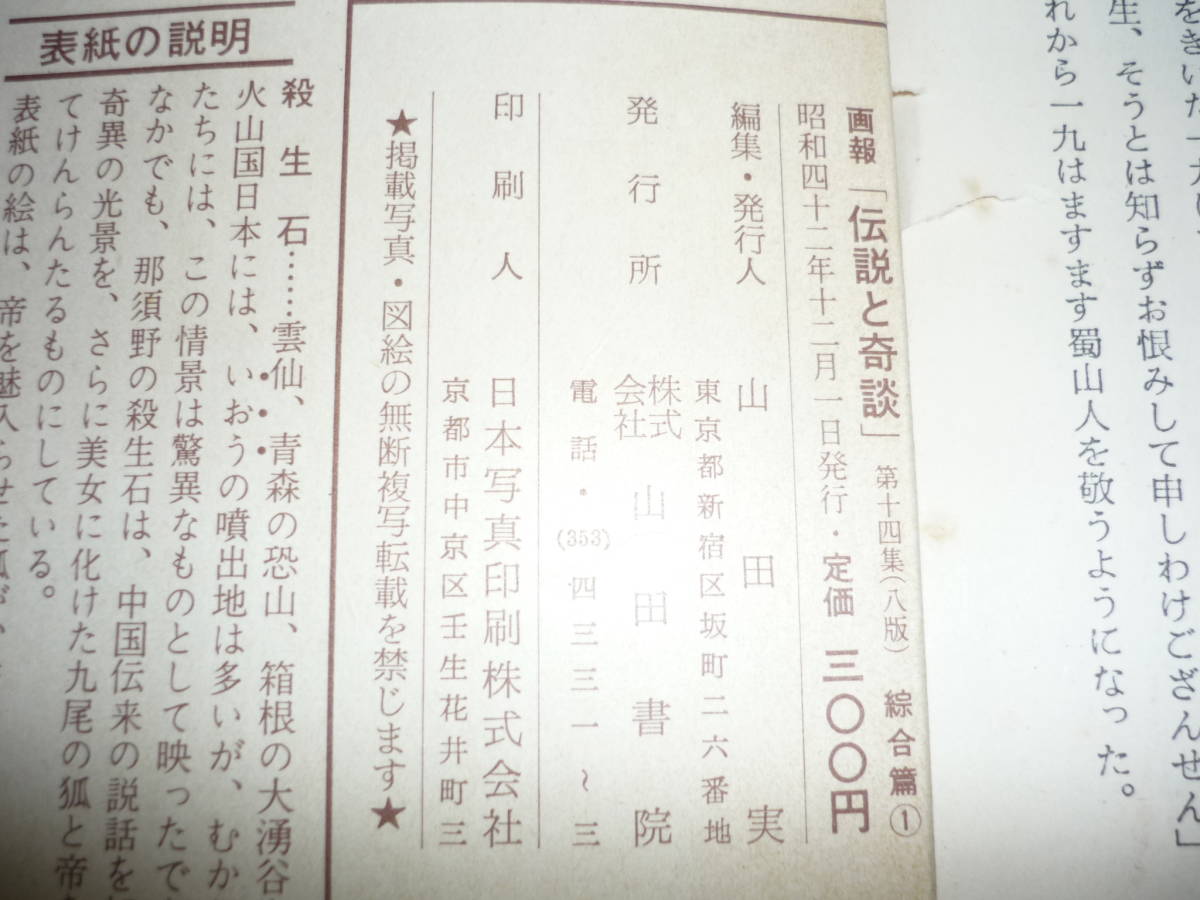 をきいた一九
生、そうとは知らずお恨みして申しわけござんせん」
れから一九はますます蜀山人を敬うようになった。
画報「伝説と奇談」第十四集(八版) 綜合篇①
昭和四十二年十二月一日発行・定価 三〇〇円
編集・発行人 山田実
東京都新宿区坂町二六番地
発行所 株式会社 山田書院
電話・(353)四三三一〜三
印刷人 日本写真印刷株式会社
京都市中京区壬生花井町三
★掲載写真・図絵の無断複写転載を禁じます★
表紙の説明
殺生石……雲仙、青森の恐山、箱根の大湧谷
火山国日本には、いおうの噴出地は多いが、むか
たちには、この情景は驚異なものとして映ったで
なかでも、那須野の殺生石は、中国伝来の説話を
奇異の光景を、さらに美女に化けた九尾の狐と帝
てけんらんたるものにしている。
表紙の絵は、帝を魅入らせた狐が、